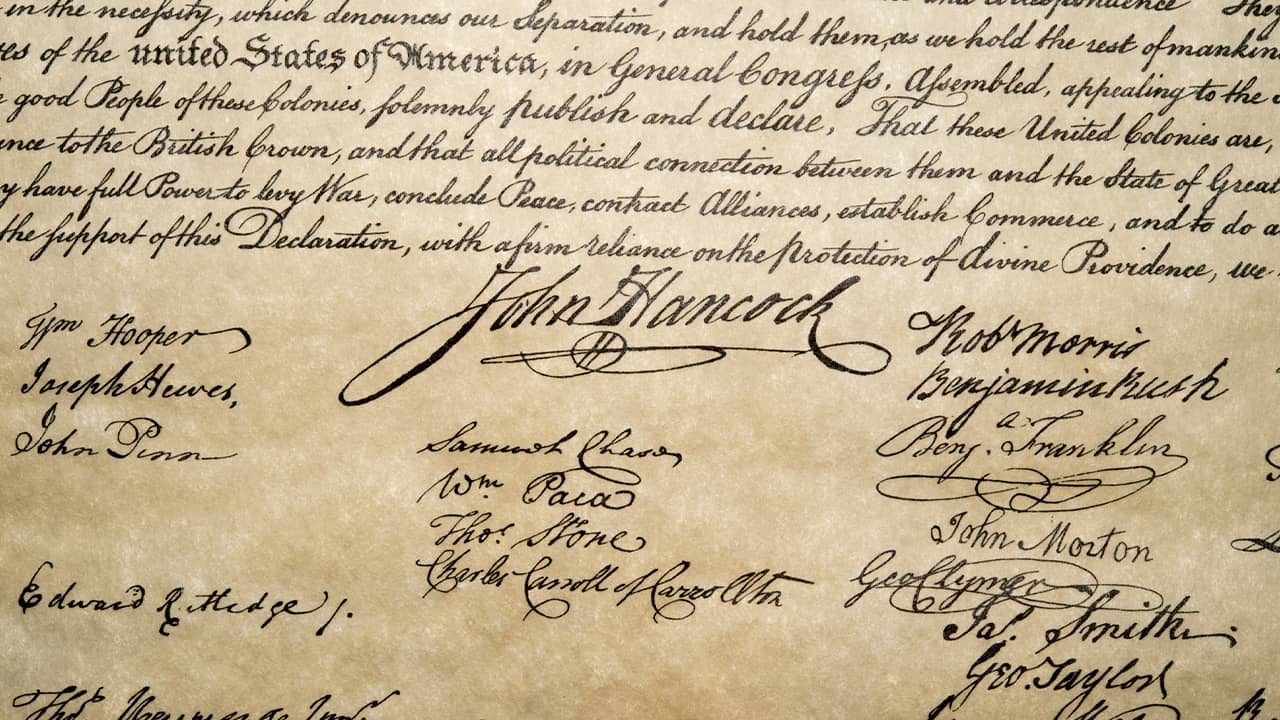 in the necessity, which denounces our Separation, and hold them, as we hold the rest of
of the united States of America, in General Congress, Assembled, appealing to the
good People of these Colonies, solemnly publish and declare, That these United Colonies are,
to the British Crown, and that all political connection between them and the State of Great
have full Power to levy War, conclude Peace, contract Alliances, establish Commerce, and to do
the support of this Declaration, with a firm reliance on the protection of divine Providence, we
John Hancock
Wm Hooper
Joseph Hewes,
John Penn
Edward Rutledge /.
Samuel Chase
Wm. Paca
Thos. Stone
Charles Carroll of Carrollton
Robt Morris
Benjamin Rush
Benja. Franklin
John Morton
Geo Clymer
Jas. Smith.
Geo. Taylor